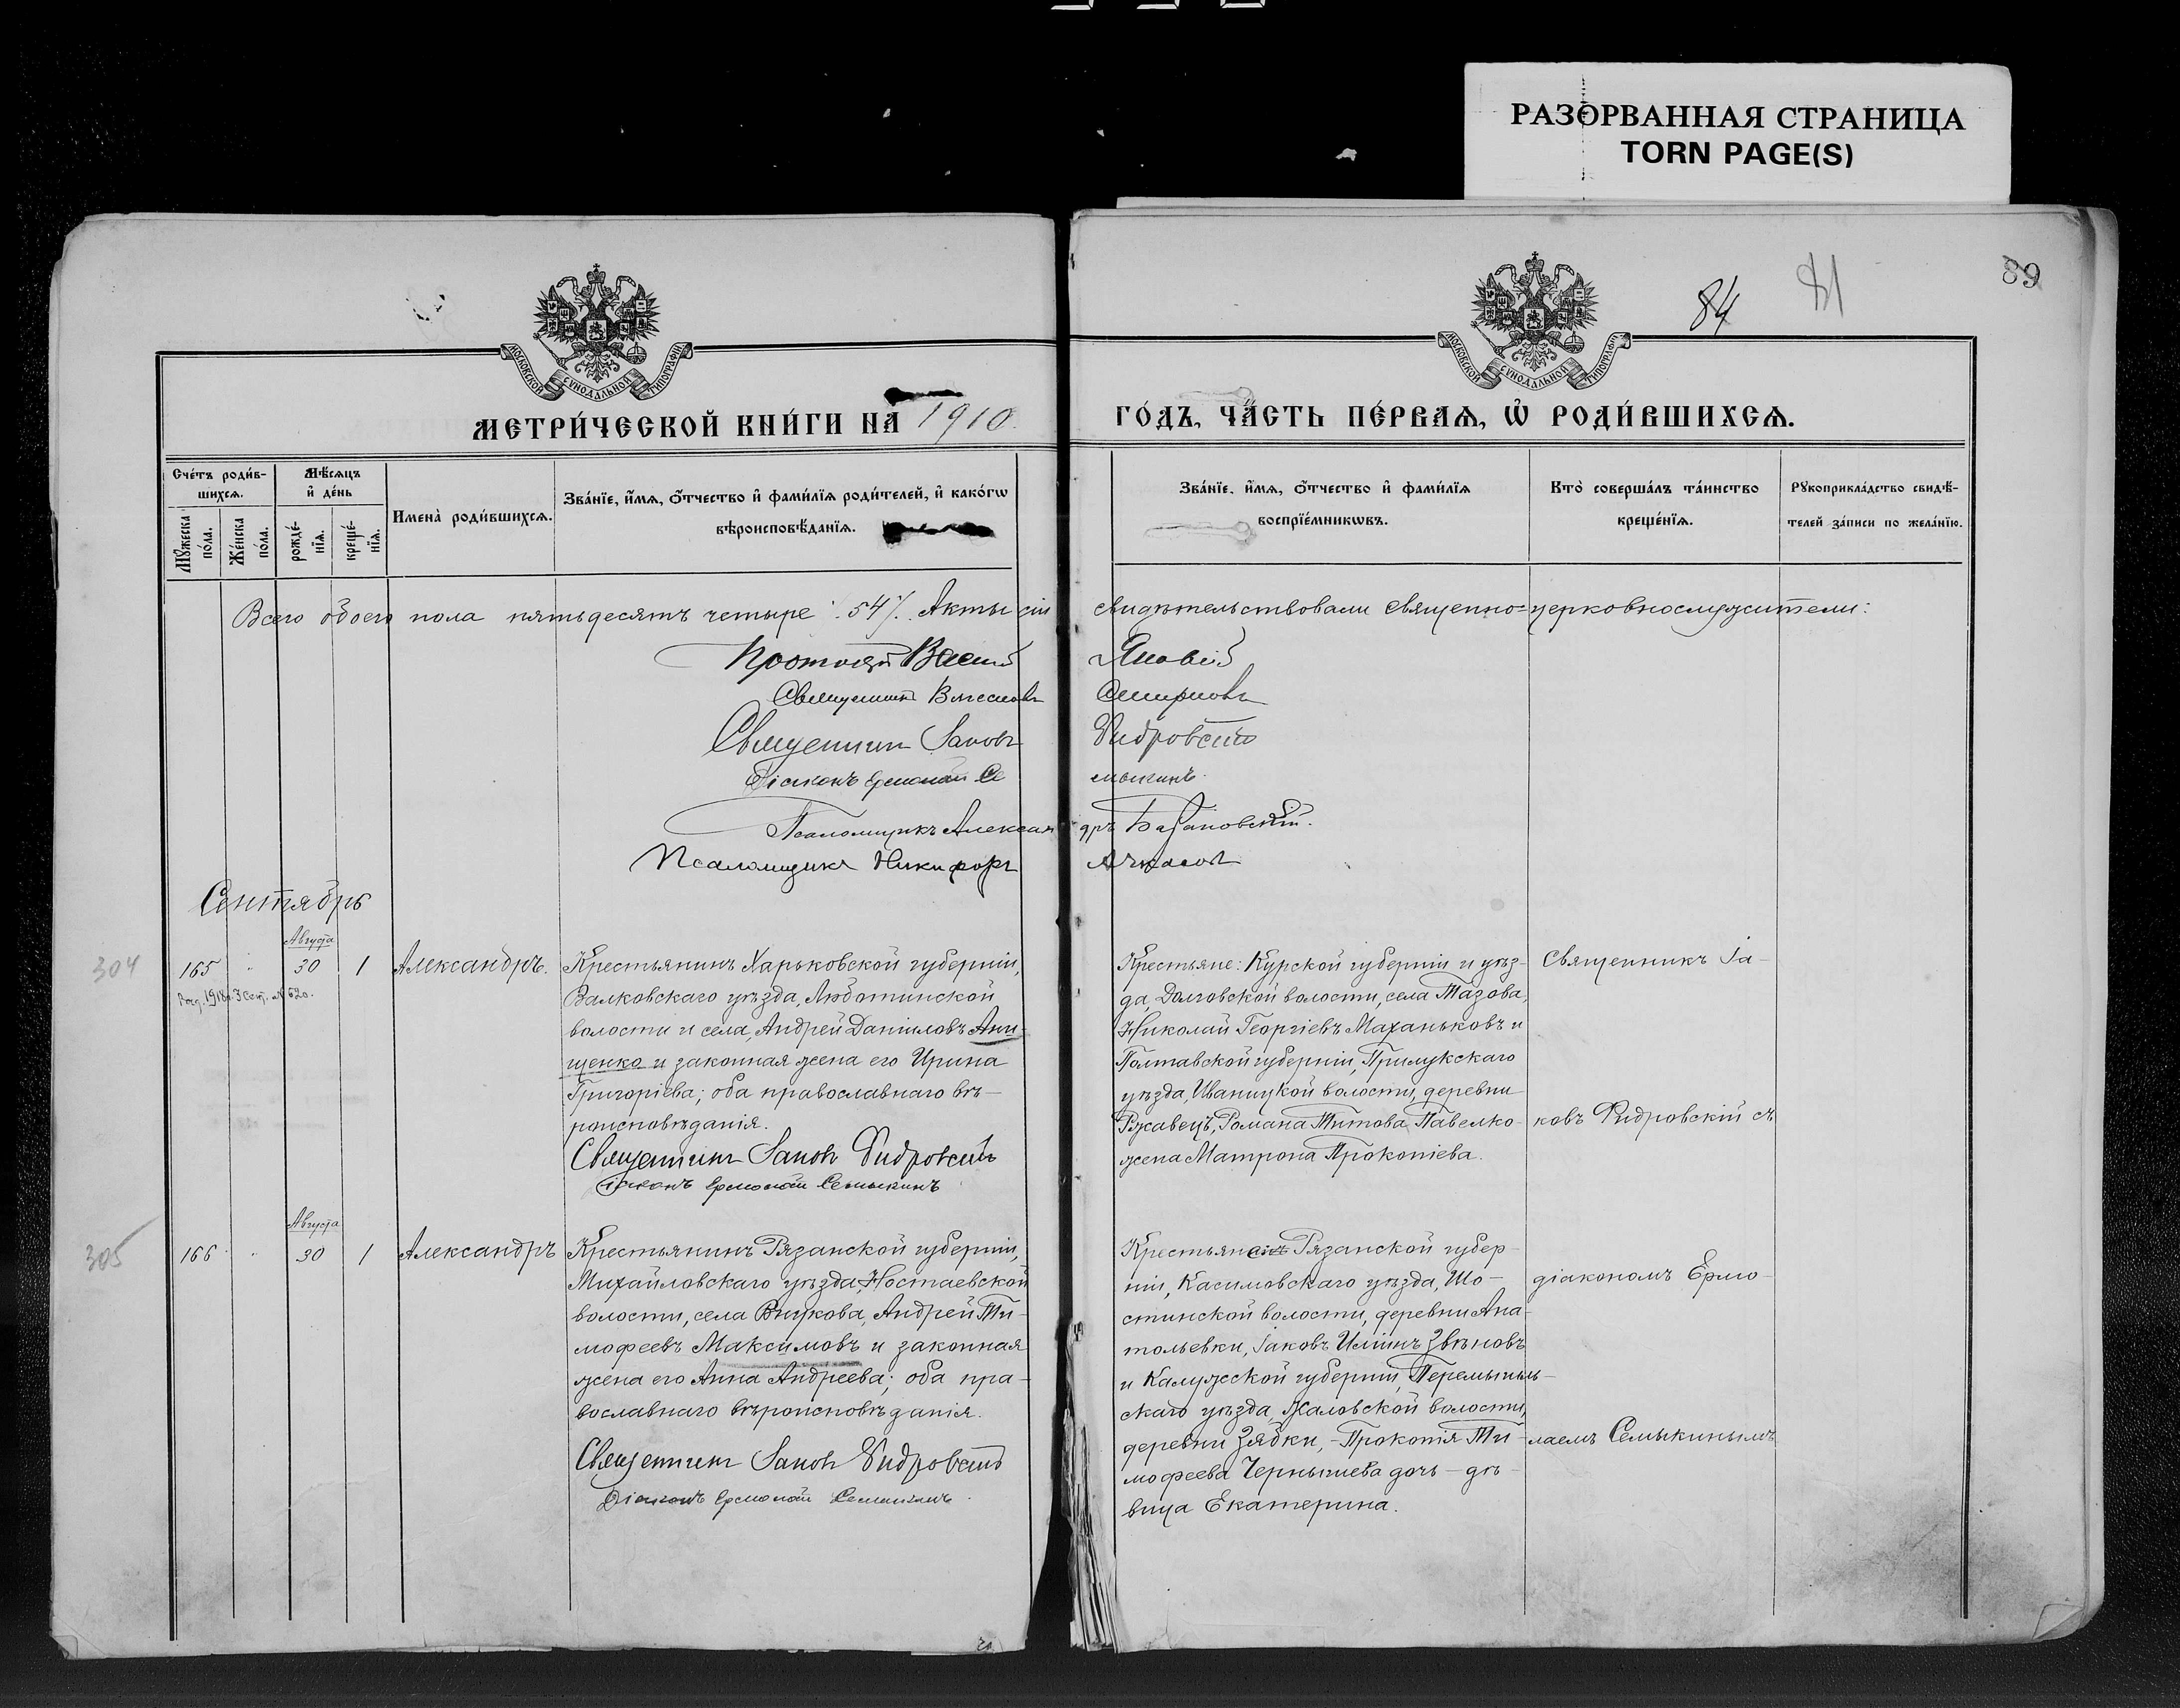 РАЗОРВАННАЯ СТРАНИЦА
TORN PAGE(S)
84
81
89
МОСКОВСКОЙ СѴНОДАЛЬНОЙ ТИПОГРАФІИ
МОСКОВСКОЙ СѴНОДАЛЬНОЙ ТИПОГРАФІИ
МЕТРИ́ЧЕСКОЙ КНИ́ГИ НА 1910
ГО́ДЪ, ЧА́СТЬ ПЕ́РВАѦ, Ѡ҆ РОДИ́ВШИХСѦ.
Сче́тъ роди́в-
шихсѧ.
Мꙋ́жеска по́ла.
Же́нска по́ла.
Мѣ́сѧцъ
и҆ де́нь
рожде́-
нїѧ.
креще́-
нїѧ.
Имена̀ роди́вшихсѧ.
Зва́нїе, и҆́мѧ, ѻ҆́тчество и҆ фами́лїѧ роди́телей, и҆ како́гѡ
вѣроисповѣ́данїѧ.
Зва́нїе, и҆́мѧ, ѻ҆́тчество и҆ фами́лїѧ
воспрїе́мникѡвъ.
Кто̀ соверша́лъ та́инство
креще́нїѧ.
Рꙋкоприкла́дство свидѣ́-
телей за́писи по жела́нїю.
Всего обоего пола пятьдесятъ четыре ·/. 54 /. Акты сіи свидѣтельствовали священно=церковнослужители:
Священникъ Вячеславъ Смирновъ
Священникъ Іаковъ Ѳидровскій
Діаконъ Ермолай Семыкинъ.
Псаломщикъ Александръ Базановскій.
Псаломщикъ Никифоръ Ачкасовъ
Сентябрь
304
Августа
165 " 30 1 Александръ.
1918 г. 7 Сент. № 620.
Крестьянинъ Харьковской губерніи,
Валковскаго уѣзда, Люботинской
волости и села, Андрей Даніиловъ Ани-
щенко и законная жена его Ирина
Григоріева; оба православнаго вѣ-
роисповѣданія.
Священникъ Іаковъ Ѳидровскій
Діаконъ Ермолай Семыкинъ
Крестьяне: Курской губерніи и уѣз-
да, Долговской волости, села Тазова,
Николай Георгіевъ Маханьковъ и
Полтавской губерніи, Прилукскаго
уѣзда, Иваницкой волости, деревни
Ржавецъ, Романа Титова Павелко-
жена Матрона Прокопіева.
Священникъ Іа-
ковъ Ѳидровскій съ
305
Августа
166 " 30 1 Александръ
Крестьянинъ Рязанской губерніи,
Михайловскаго уѣзда,
волости, села Внукова, Андрей Ти-
мофеевъ Максимовъ и законная
жена его Анна Андреева; оба пра-
вославнаго вѣроисповѣданія.
Священникъ Іаковъ Ѳидровскій
Діаконъ Ермолай Семыкинъ.
Рязанской губер-
ніи, Касимовскаго уѣзда, Шо-
стинской волости, деревни Ана-
тольевки, Іаковъ Иліинъ Звѣновъ
и Калужской губерніи, Перемышль-
скаго уѣзда, Жаловской волости,
деревни Зябки, - Прокопія Ти-
мофеева Чернышева дочь - дѣ-
вица Екатерина.
діакономъ Ермо-
лаемъ Семыкинымъ